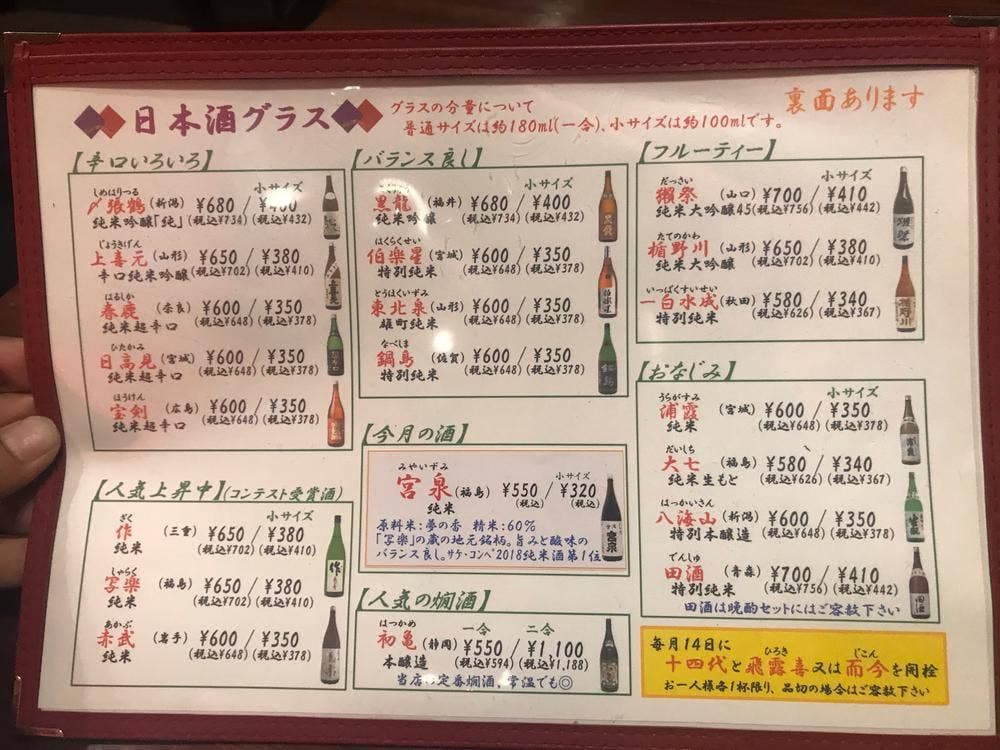 日本酒グラス
グラスの分量について
普通サイズは約180ml(一合)、小サイズは約100mlです。
裏面あります
【辛口いろいろ】
小サイズ
しめはりつる
〆張鶴 (新潟) ¥680 /
純米吟醸「純」 (税込¥734) (税込¥432)
じょうきげん
上喜元 (山形) ¥650 / ¥380
辛口純米吟醸 (税込¥702) (税込¥410)
はるしか
春鹿 (奈良) ¥600 / ¥350
純米超辛口 (税込¥648) (税込¥378)
ひたかみ
日高見 (宮城) ¥600 / ¥350
純米超辛口 (税込¥648) (税込¥378)
ほうけん
宝剣 (広島) ¥600 / ¥350
純米超辛口 (税込¥648) (税込¥378)
【人気上昇中】(コンテスト受賞酒)
小サイズ
ざく
作 (三重) ¥650 / ¥380
純米 (税込¥702) (税込¥410)
しゃらく
写楽 (福島) ¥650 / ¥380
純米 (税込¥702) (税込¥410)
あかぶ
赤武 (岩手) ¥600 / ¥350
純米 (税込¥648) (税込¥378)
【バランス良し】
小サイズ
黒龍 (福井) ¥680 / ¥400
純米吟醸 (税込¥734) (税込¥432)
はくらくせい
伯楽星 (宮城) ¥600 / ¥350
特別純米 (税込¥648) (税込¥378)
とうほくいずみ
東北泉 (山形) ¥600 / ¥350
雄町純米 (税込¥648) (税込¥378)
なべしま
鍋島 (佐賀) ¥600 / ¥350
特別純米 (税込¥648) (税込¥378)
【今月の酒】
みやいずみ
小サイズ
宮泉 (福島) ¥550 / ¥320
純米 (税込) (税込)
原料米:夢の香 精米:60%
「写楽」の蔵の地元銘柄。旨みと酸味の
バランス良し。サケ・コンペ2018純米酒第1位
【人気の燗酒】
はつかめ 一合 二合
初亀 (静岡) ¥550 / ¥1,100
本醸造 (税込¥594) (税込¥1,188)
当店の定番燗酒、常温でも◎
【フルーティー】
小サイズ
だっさい
獺祭 (山口) ¥700 / ¥410
純米大吟醸45 (税込¥756) (税込¥442)
たてのかわ
楯野川 (山形) ¥650 / ¥380
純米大吟醸 (税込¥702) (税込¥410)
いっぱくすいせい
一白水成 (秋田) ¥580 / ¥340
特別純米 (税込¥626) (税込¥367)
【おなじみ】
小サイズ
うらがすみ
浦霞 (宮城) ¥600 / ¥350
純米 (税込¥648) (税込¥378)
だいしち
大七 (福島) ¥580 / ¥340
純米生もと (税込¥626) (税込¥367)
はっかいさん
八海山 (新潟) ¥600 / ¥350
特別本醸造 (税込¥648) (税込¥378)
でんしゅ
田酒 (青森) ¥700 / ¥410
特別純米 (税込¥756) (税込¥442)
田酒は晩酌セットにはご容赦下さい
毎月14日に
ひろき じこん
十四代と飛露喜又は而今を開栓
お一人様各1杯限り、品切の場合はご容赦下さい